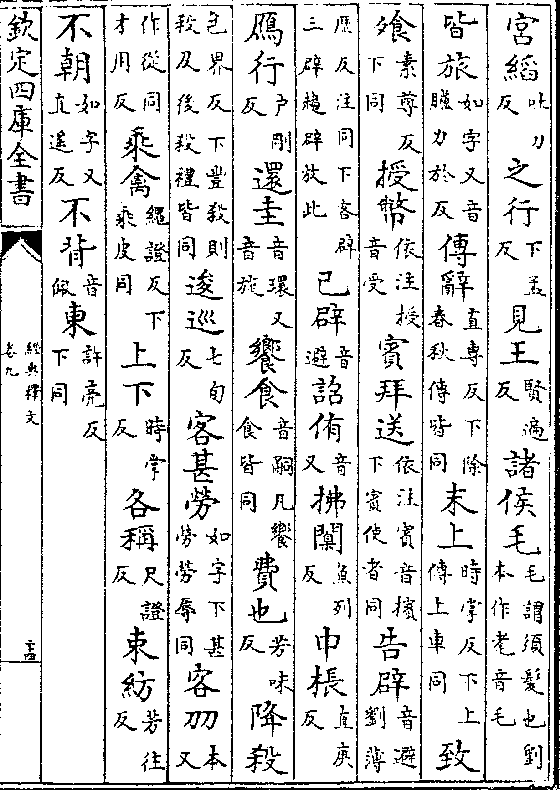 宮縚吐刀反之行下孟反見王賢遍反諸侯毛毛謂須髮也劉本作耄音毛
皆旅如字又音臚力於反傳辭直專反下除春秋傳皆同末上時掌反下上傳上車同致
飧素尊反下同授幣依注授音受賓拜送依注賓音擯下賓使者同告辟音避劉薄
歴反注同下客辟三辟趨辟放此已辟音避詔侑音又拂闑魚列反巾棖直庚反
鴈行戶剛反還圭音環又音旋饗食音嗣凡饗食皆同費也芳味反降殺
色界反下豐殺則殺及後殺禮皆同逡巡七旬反客甚勞如字下甚勞勞辱同客从本又
作從同才用反乘禽繩證反下乘皮同上下時掌反各稱尺證反束紡芳往反
不朝如字又直遥反不背音佩東許亮反下同
欽定四庫全書
經典釋文
卷九